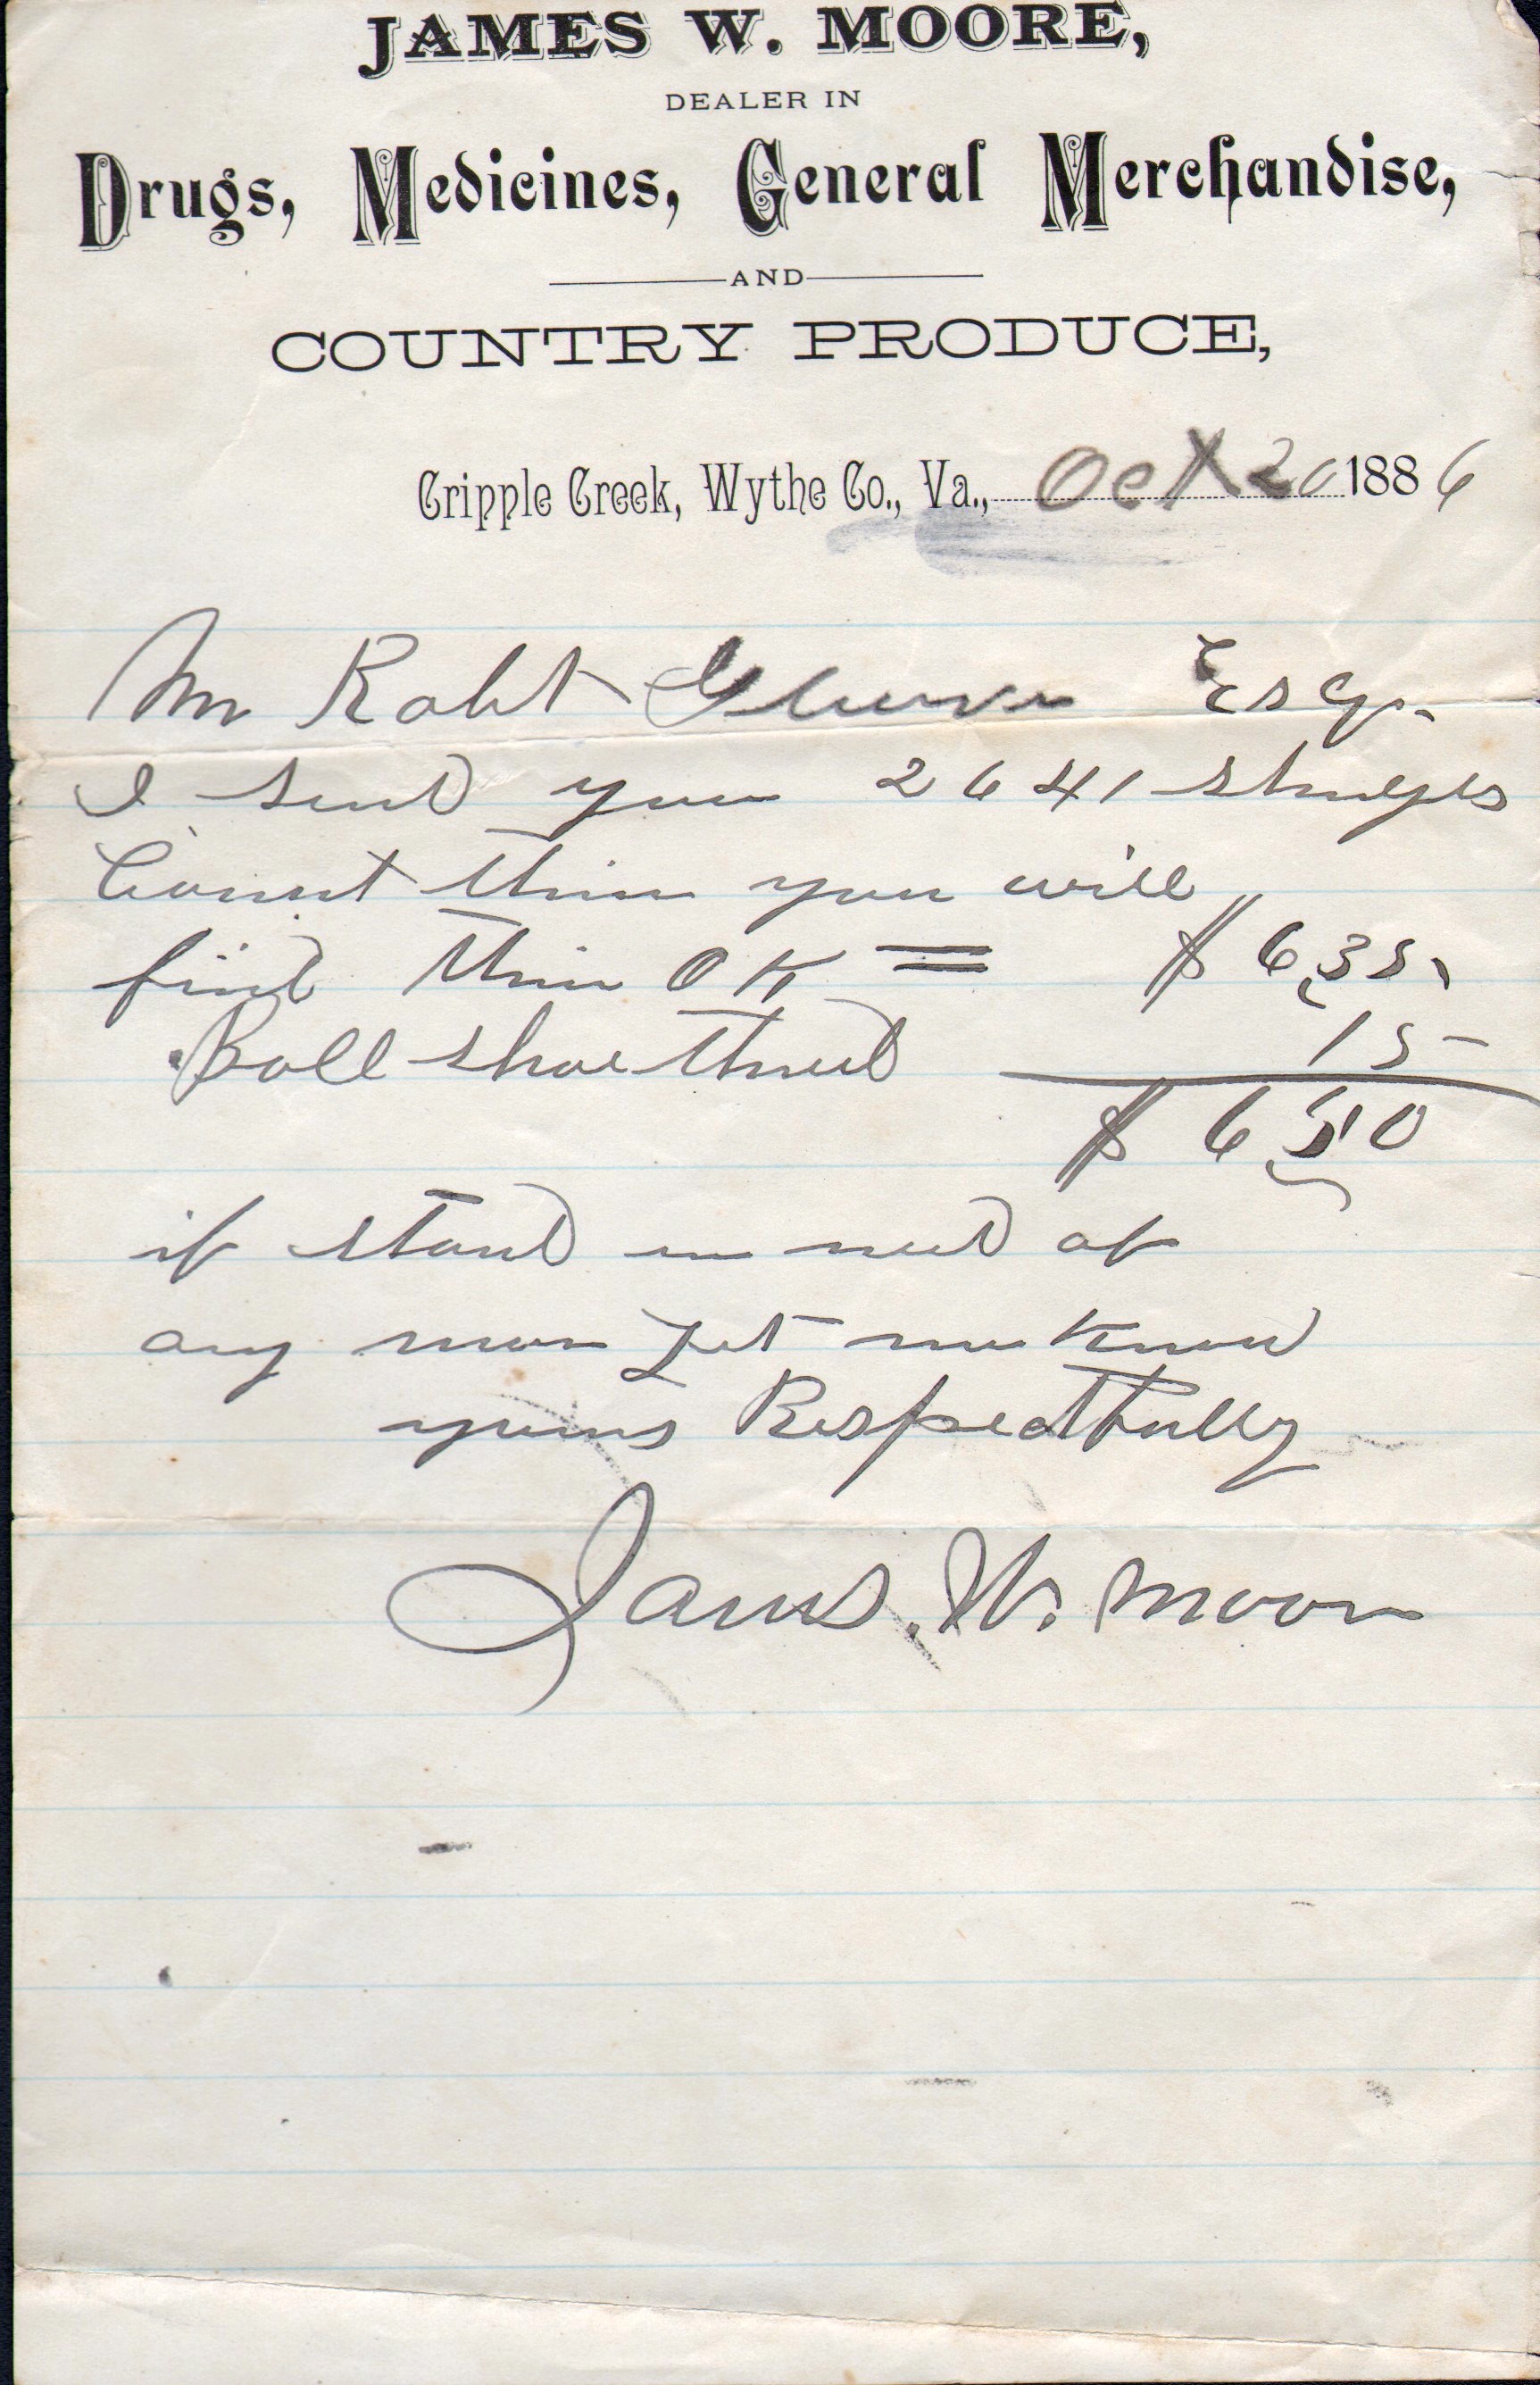 JAMES W. MOORE,
DEALER IN
Drugs, Medicines, General Merchandise,
AND
COUNTRY PRODUCE,
Cripple Creek, Wythe Co., Va., Oct 20 1886
Mr Robt Esq.
I send you 2641 shingles
Count them you will
find them OK = $ 6,35
Ball shoe thread 15
$ 6,50
if stand in need of
any more Let me know
yours Respectfully
James. W. Moore